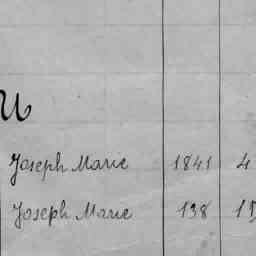 U
Joseph Marie 1841 4
Joseph Marie 138 15